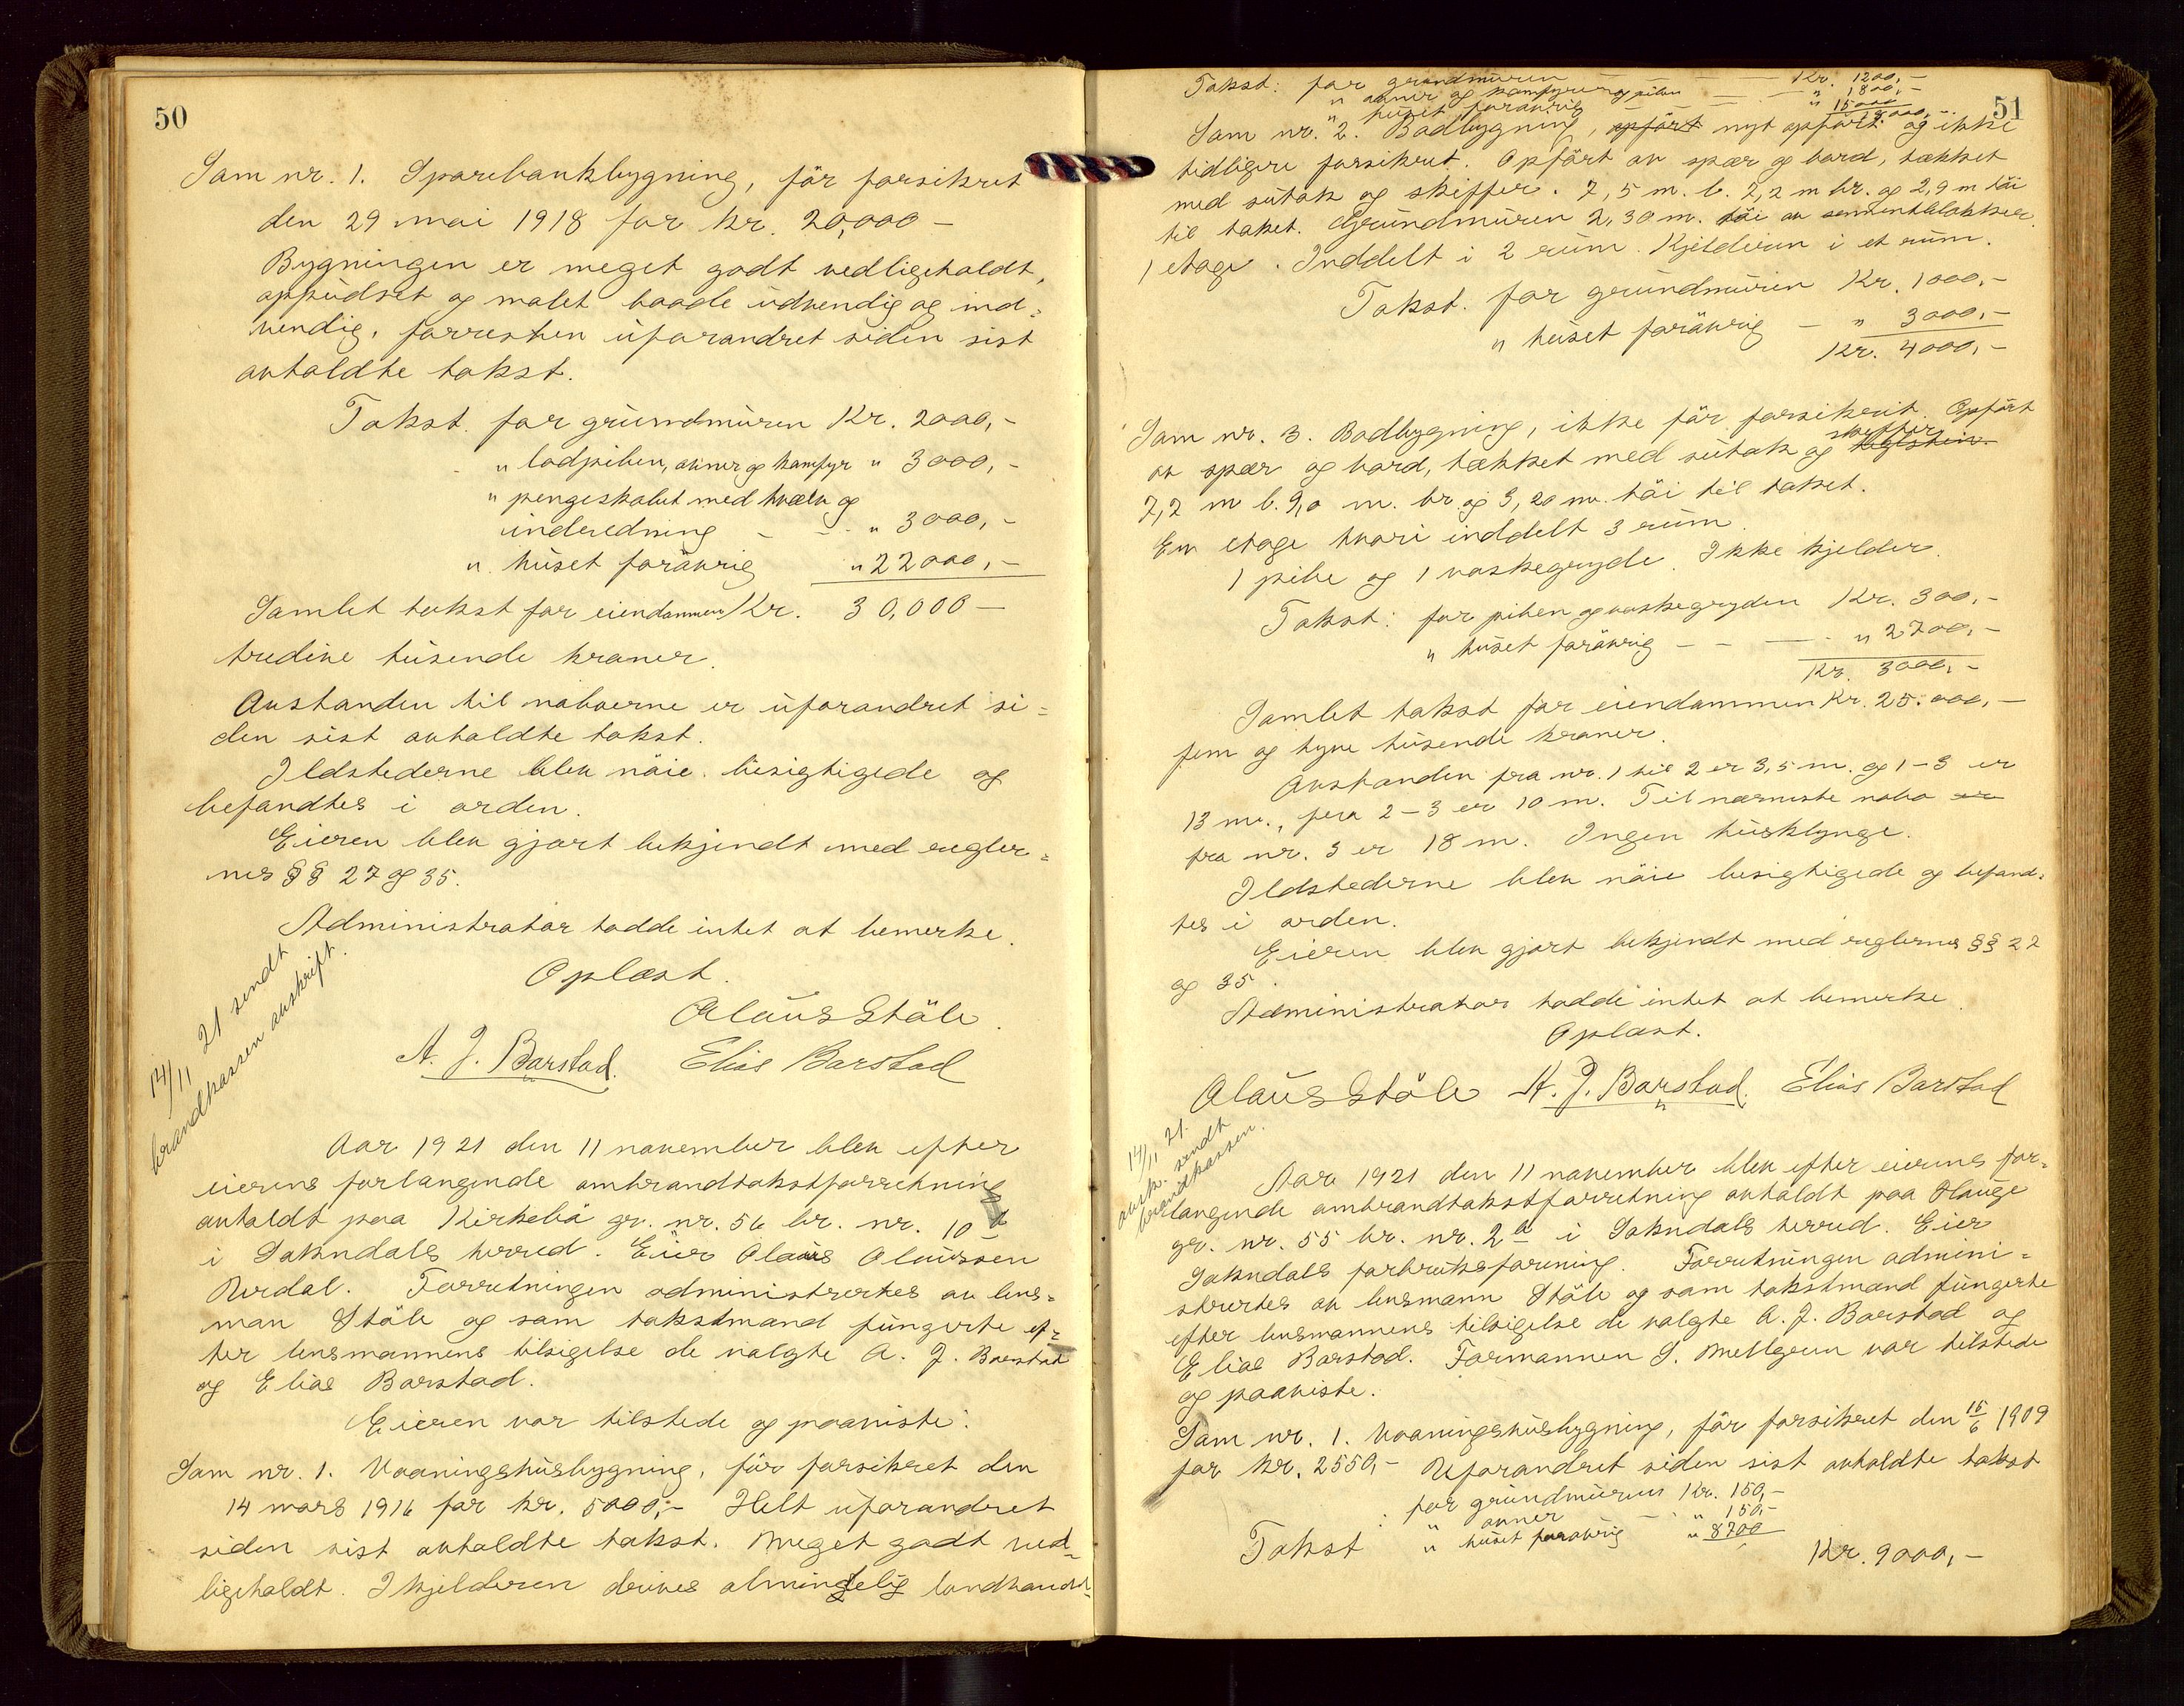 50
Som nr. 1. Sparebankbygning, før forsikret
den 29 mai 1918 for kr. 20,000 –
Bygningen er meget godt vedlikeholdt,
oppudset og malet baade udvendig og ind-
vendig, forresten uforandret siden sist
avholdte takst.
Takst. for grundmuren Kr. 2000,-
" lodpiben, ovner og kamfyr " 3000,-
" pengeskabet med hvælv og
inderedning – – " 3000,-
" huset forøvrig " 22000,-
Samlet takst for eiendommen Kr. 30,000 –
tredive tusende kroner.
Avstanden til naboerne er uforandret si-
den sist avholdte takst.
Ildstederne blev nøie besigtigede og
befandtes i orden.
Eieren blev gjort bekjendt med regler-
nes §§ 27 og 35.
Administrator hadde intet at bemerke.
Oplæst.
Olaus Støle.
A. J. Barstad. Elias Barstad
14/11 21 sendt
brandkassen avskrift.
Aar 1921 den 11 november blev efter
eierens forlangende ombrandtakstforretning
avholdt paa Kirkebø gr. nr. 56 br. nr. 10
i Sokndals herred. Eier Olaus Olaussen
Urdal. Forretningen administrertes av lens-
man Støle og som takstmænd fungerte ef-
ter lensmannens tilsigelse de valgte A. J. Barstad
og Elias Barstad.
Eieren var tilstede og paaviste:
Som nr. 1. Vaaningshusbygning, før forsikret den
14 mars 1916 for kr. 5000,- Helt uforandret
siden sist avholdte takst. Meget godt ved-
ligeholdt. I kjelderen drives almindelig landhandel
51
Takst: for grundmuren – – – Kr. 1200,-
" ovner og kamfyrer og piben – – " 1800,-
" huset forøvrig – – – " 15000
18000,-
Som nr. 2. Bodbygning, opført nyt opført og ikke
tidligere forsikret. Opført av spær og bord, tækket
med sutak og skiffer. 7,5 m. l. 7,2 m br. og 2,9 m høi
til taket. Grundmuren 2,30 m. høi av sementblokker.
1 etage. Inddelt i 2 rum. Kjelderen i et rum.
Takst. for grundmuren Kr. 1000,-
" huset forøvrig – " 3000,-
Kr. 4000,-
Som nr. 3. Bodbygning, ikke før forsikret. Opført
av spær og bord, tækket med sutak og teglsten skiffer
7,2 m l. 9,0 m. br. og 3,20 m. høi til taket.
En etage hvori inddelt 3 rum.
1 pibe og 1 vaskegryde. Ikke kjelder.
Takst: for piben og vaskegryden Kr. 300,-
" huset forøvrig – – – " 2700,-
Kr. 3000,-
Samlet takst for eiendommen Kr. 25.000,-
fem og tyve tusende kroner.
Avstanden fra nr. 1 til 2 er 3,5 m. og 1–3 er
13 m., fra 2–3 er 10 m. Til nærmeste nabo er
fra nr. 3 er 18 m. Ingen husklynge.
Ildstederne blev nøie besigtigede og befand-
tes i orden.
Eieren blev gjort bekjendt med reglernes §§ 27
og 35.
Administrator hadde intet at bemerke.
Oplæst.
Olaus Støle A. J. Barstad. Elias Barstad
14/11 21.
avsk. sendt
brandkassen.
Aar 1921 den 11 november blev efter eierens for-
langende ombrandtakstforretning avholdt paa Hauge
gr. nr. 55 br. nr. 2a i Sokndals herred. Eier
Sokndals forbruksforening. Forretningen admini-
strertes av lensmann Støle og som takstmænd fungerte
efter lensmannens tilsigelse de valgte A. J. Barstad og
Elias Barstad. Formannen S. Mellgren var tilstede
og paaviste.
Som nr. 1. Vaaningshusbygning, før forsikret den 15/6 1909
for kr. 2550,- Uforandret siden sist avholdte takst
Takst: for grundmuren Kr. 150,-
" ovner – " 150,-
" huset forøvrig " 8700
Kr. 9000,-